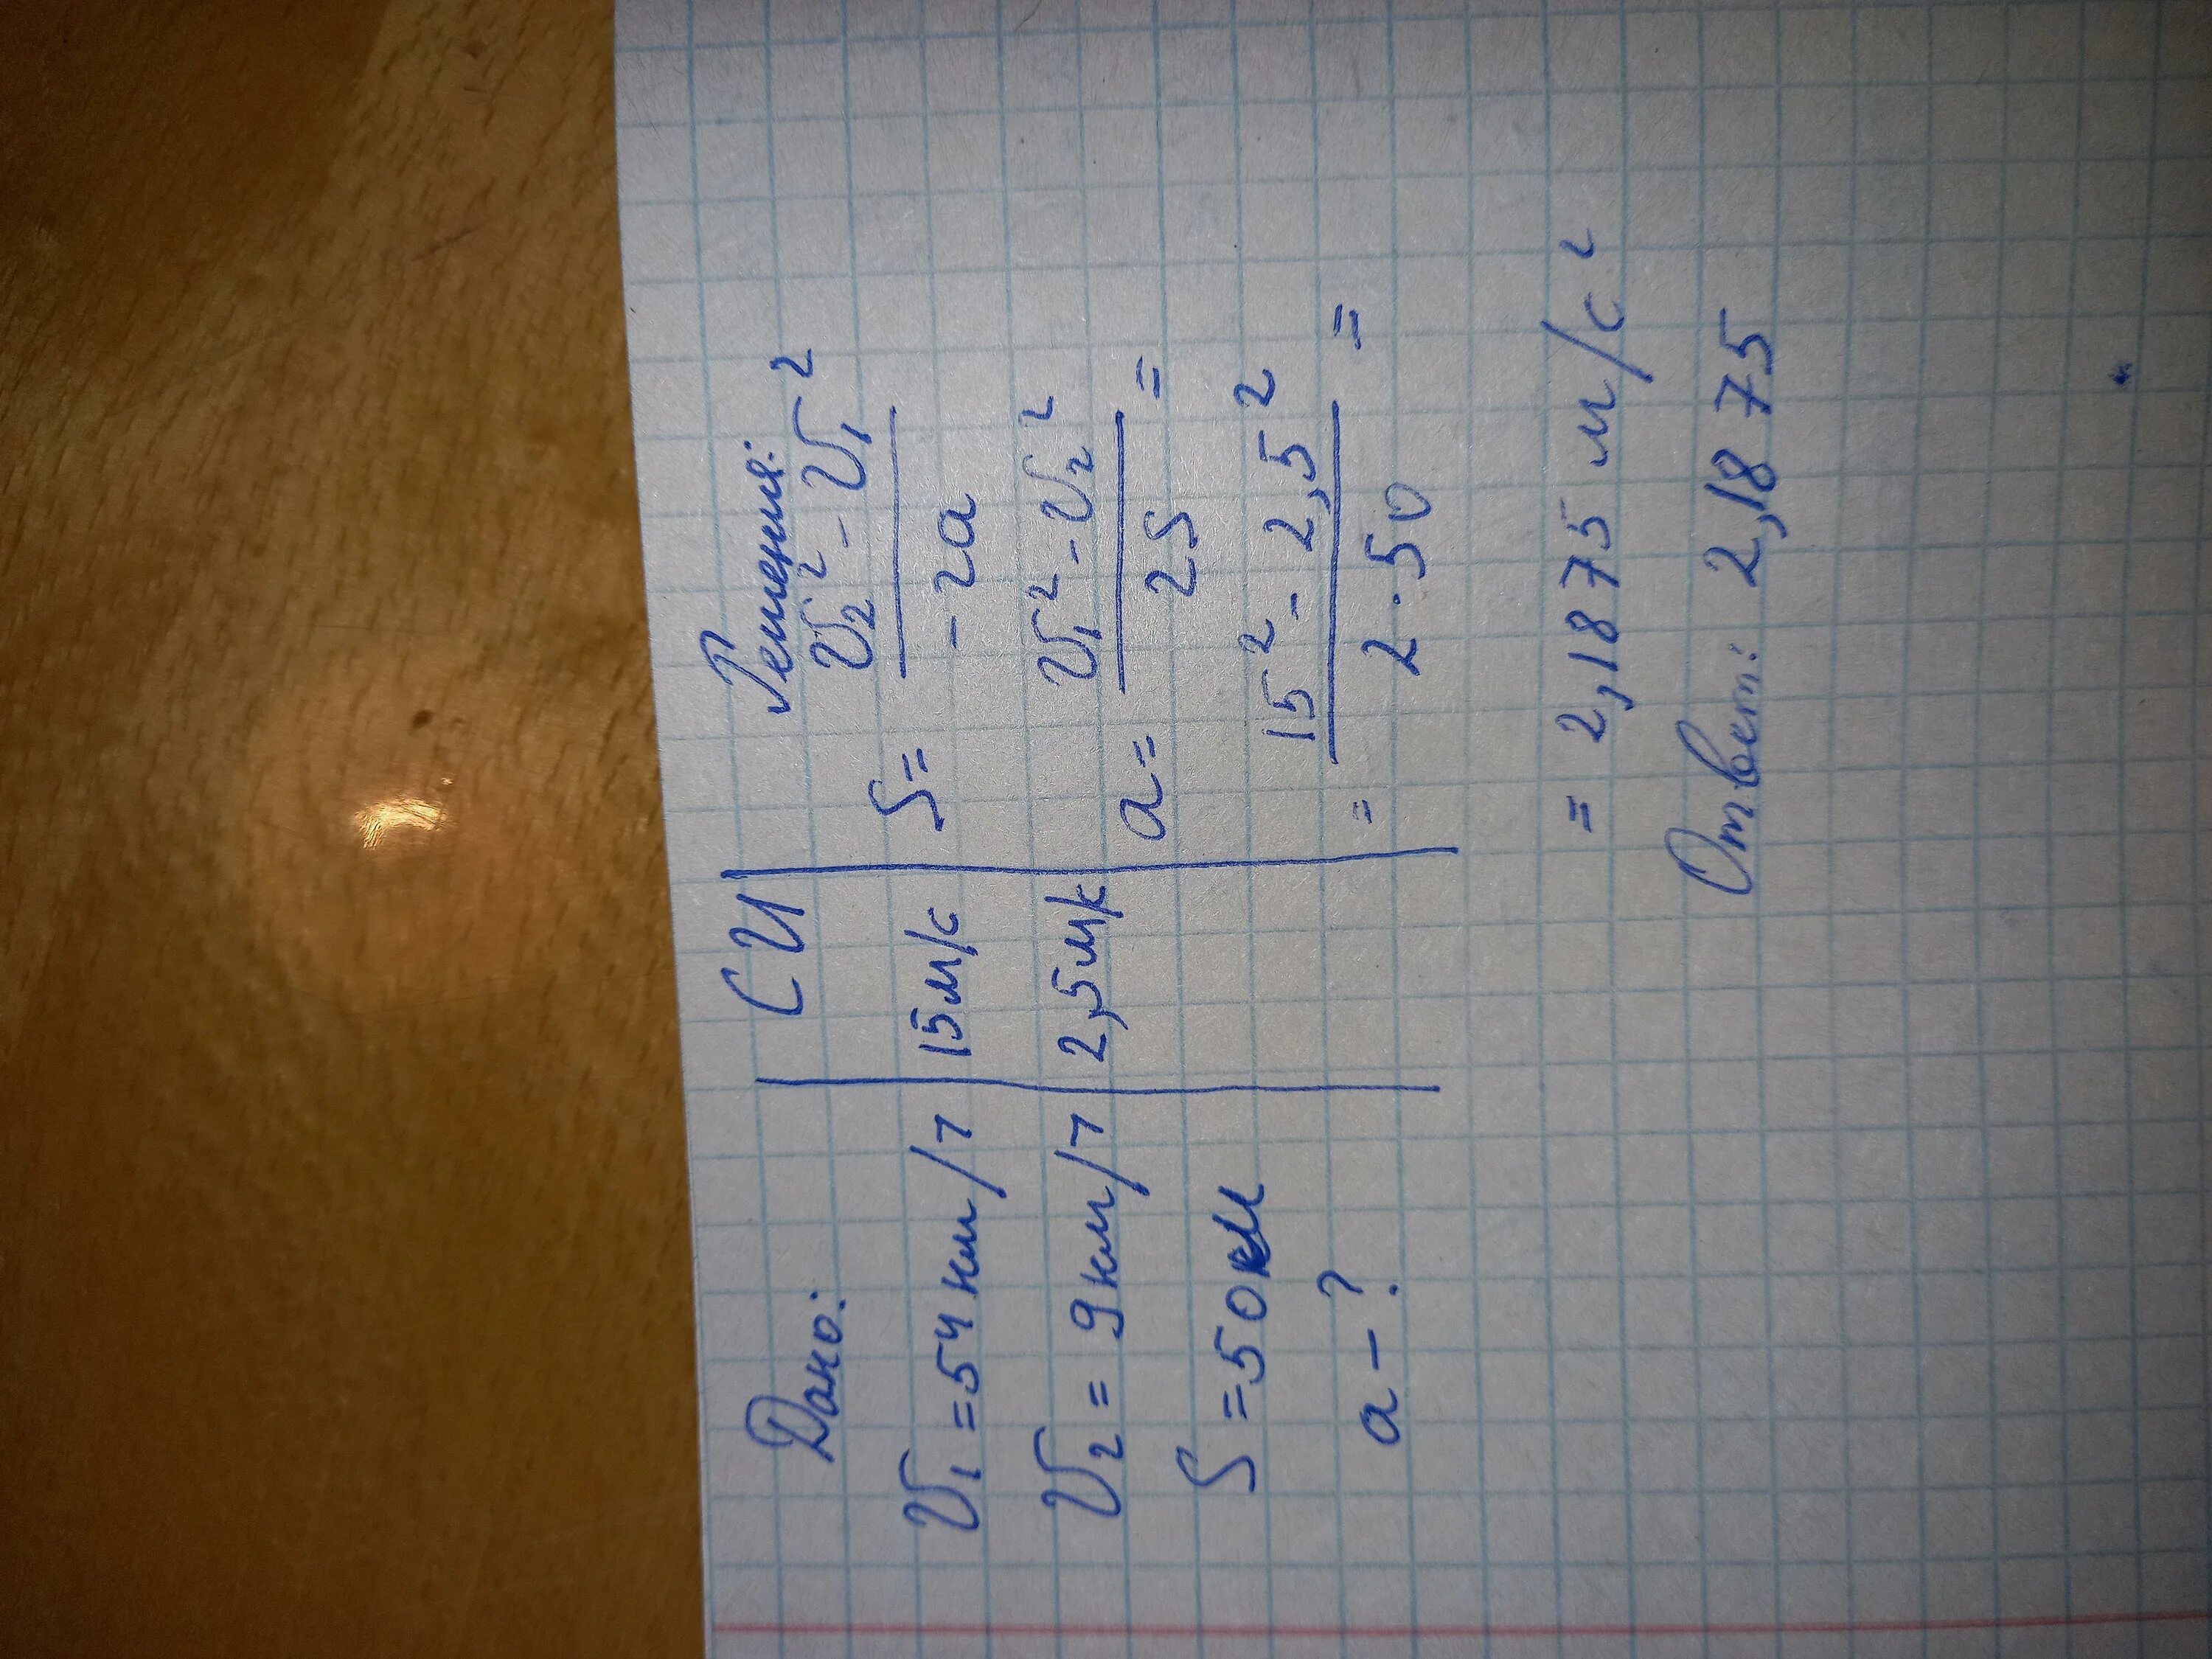 Дано:
V₁ = 54 км/ч
V₂ = 9 км/ч
S = 50 м
a - ?
СИ
15 м/с
2,5 м/с
Решения:
S = (V₂² - V₁²) / (-2a)
a = (V₁² - V₂²) / (2S) =
= (15² - 2,5²) / (2 · 50) =
= 2,1875 м/с²
Ответ: 2,1875